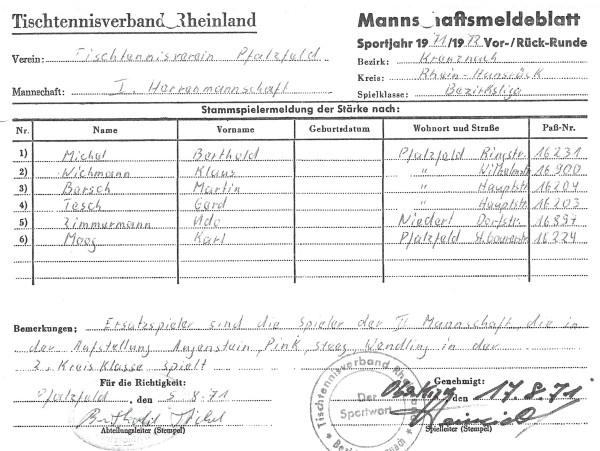 Tischtennisverband Rheinland
Mannschaftsmeldeblatt
Sportjahr 1971/1972 Vor-/Rück-Runde
Verein: Tischtennisverein Pfalzfeld
Bezirk: Kreuznach
Kreis: Rhein-Hunsrück
Mannschaft: I. Herrenmannschaft
Spielklasse: Bezirksliga
Stammspielermeldung der Stärke nach:
Nr. Name Vorname Geburtsdatum Wohnort und Straße Paß-Nr.
1) Michel Berthold Pfalzfeld Ringstr. 16231
2) Wichmann Klaus " 16900
3) Barsch Martin " Hauptstr. 16204
4) Tesch Gerd " Hauptstr. 16203
5) Zimmermann Udo Niedert Dorfstr. 16897
6) Moog Karl Pfalzfeld 16224
Bemerkungen: Ersatzspieler sind die Spieler der II Mannschaft die in
der Aufstellung Augenstein, Pink, Steeg, Wendling in der
2. Kreis Klasse spielt
Für die Richtigkeit:
Genehmigt:
Pfalzfeld, den 5.8.71
den 17.8.71
Abteilungsleiter (Stempel)
Spielleiter (Stempel)
Tischtennisverband
Der
Sportwart